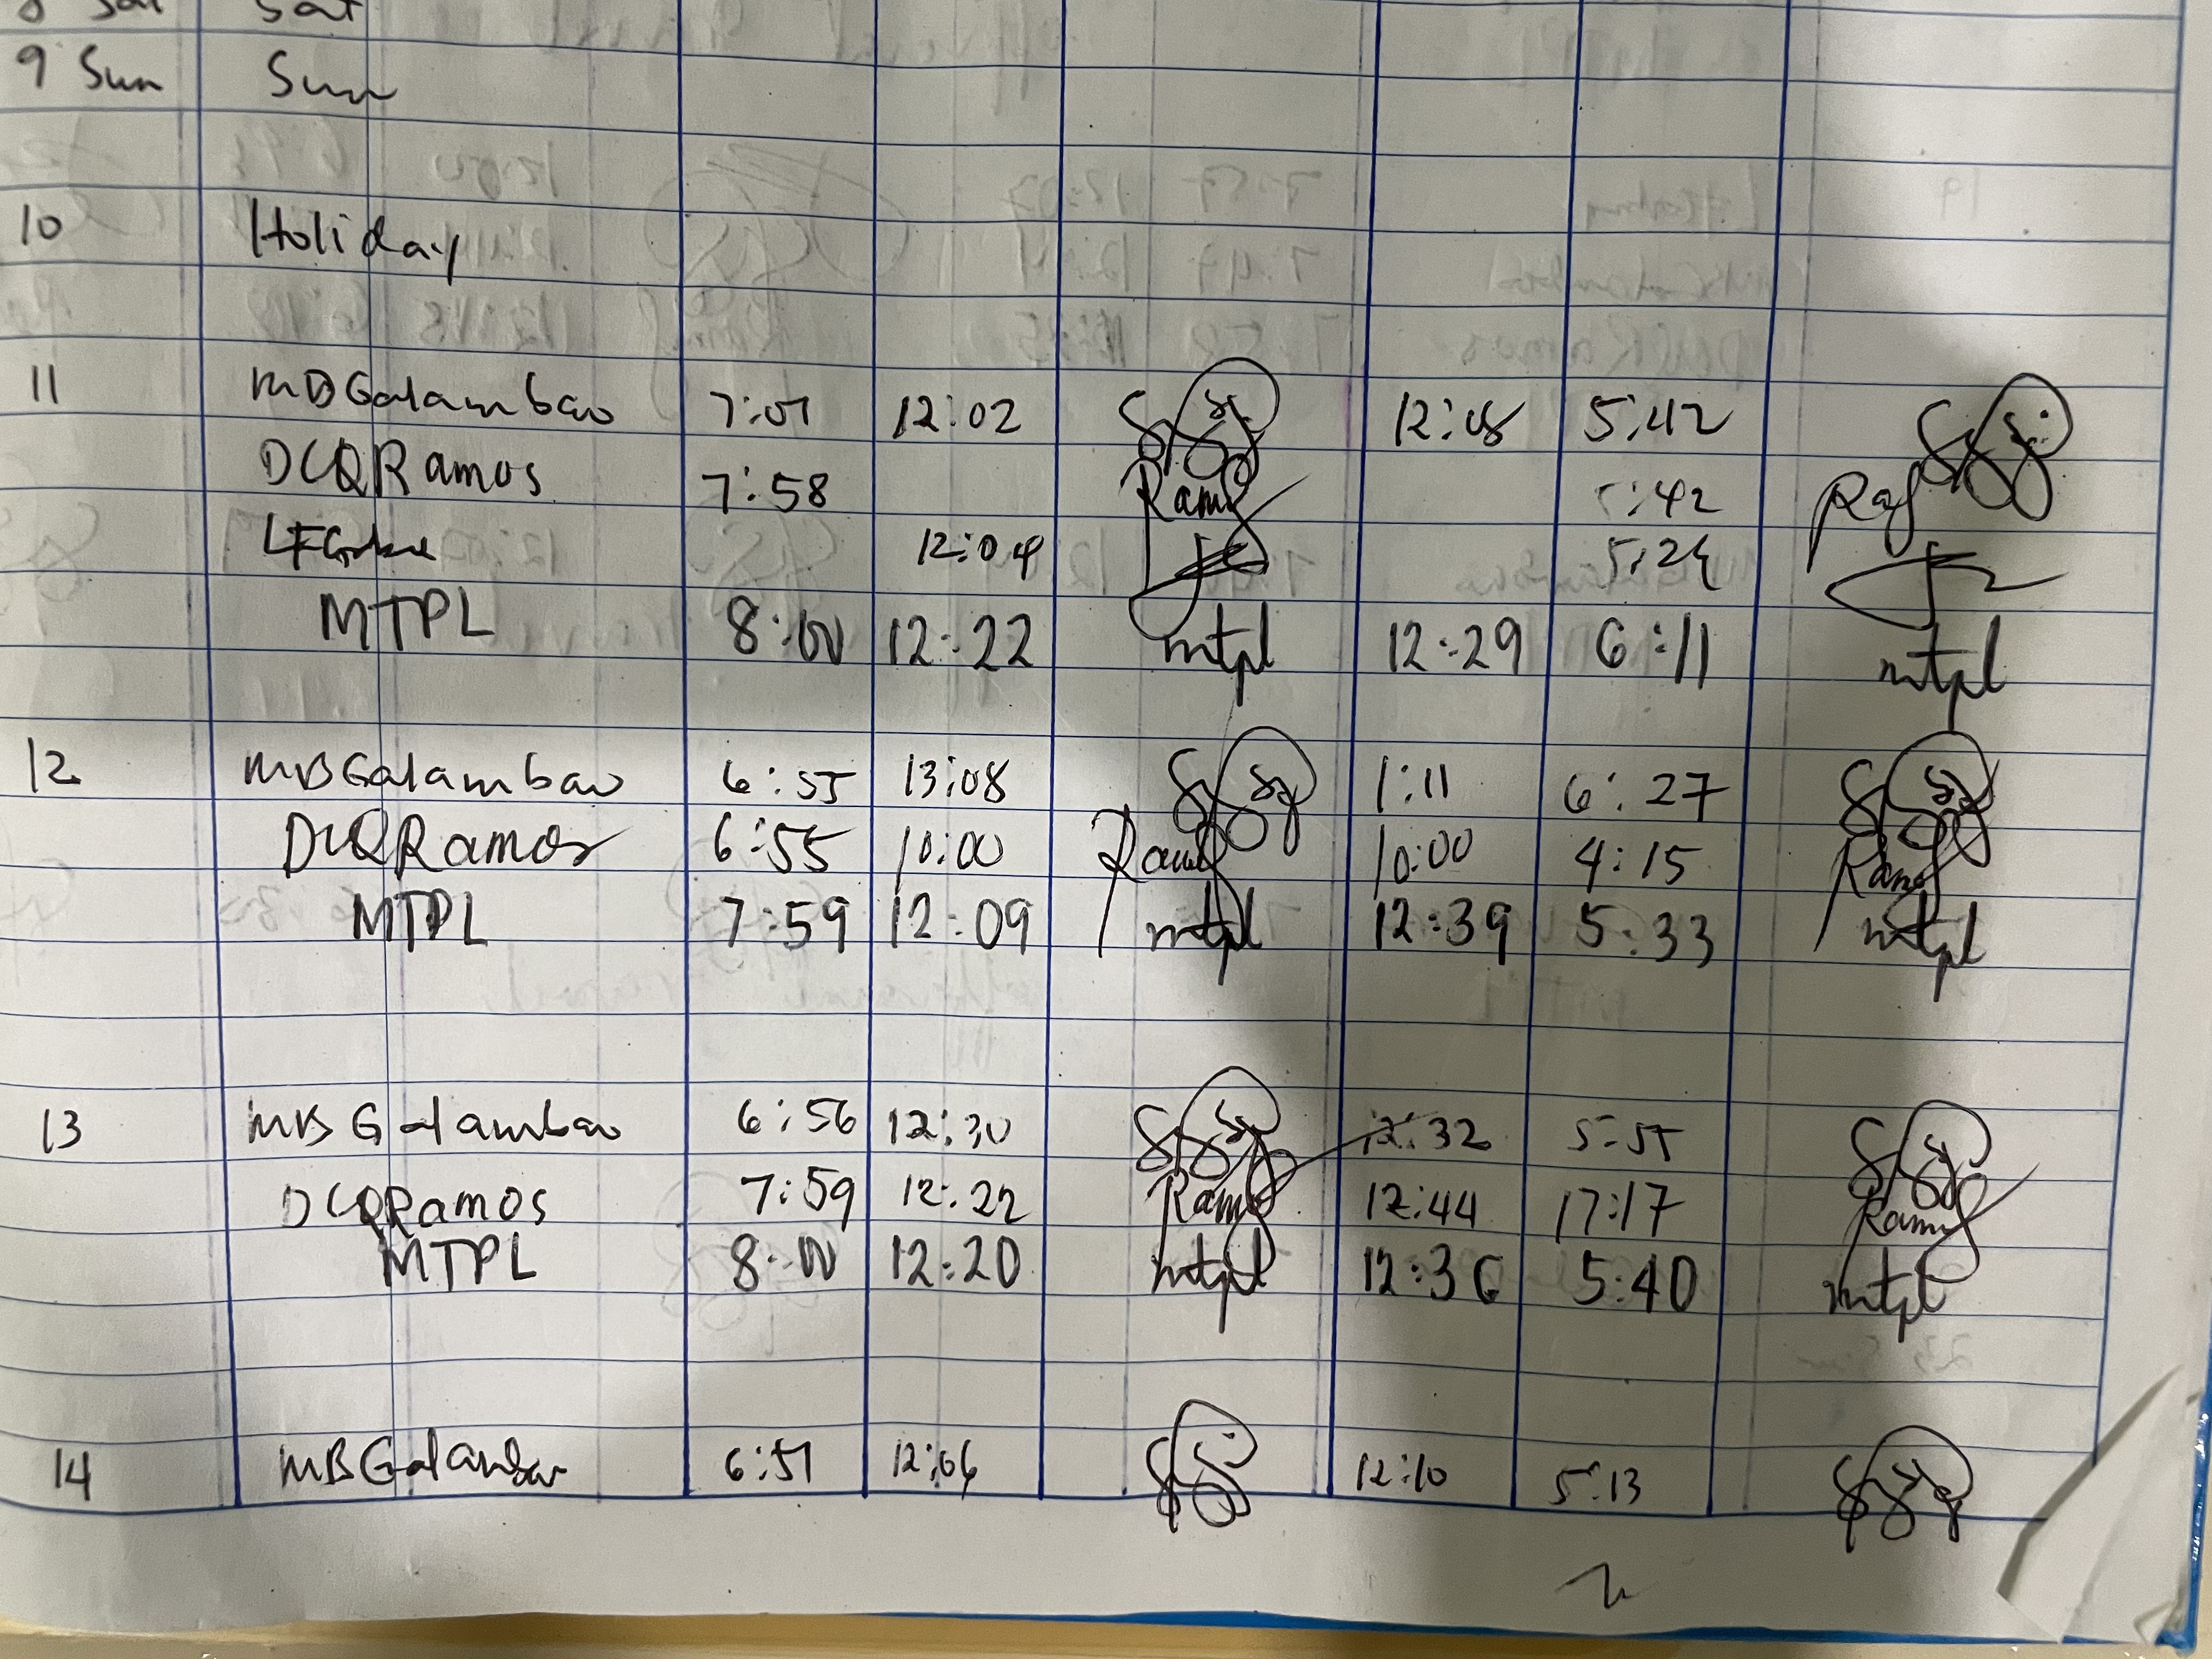 8 Sat Sat
9 Sun Sun
10 Holiday
11 MBGalambao 7:07 12:02 12:08 5:42
DCQRamos 7:58 Ramos :42
12:04 5:24
MTPL 8:00 12:22 mtpl 12:29 6:11 mtpl
12 MBGalambao 6:55 13:08 1:11 6:27
DCQRamos 6:55 10:00 10:00 4:15
MTPL 7:59 12:09 mtpl 12:39 5:33 mtpl
13 MBGalambao 6:56 12:30 12:32 5:55
DCQRamos 7:59 12:22 12:44 17:17
MTPL 8:00 12:20 mtpl 12:36 5:40 mtpl
14 MBGalambao 6:57 12:06 12:10 5:13